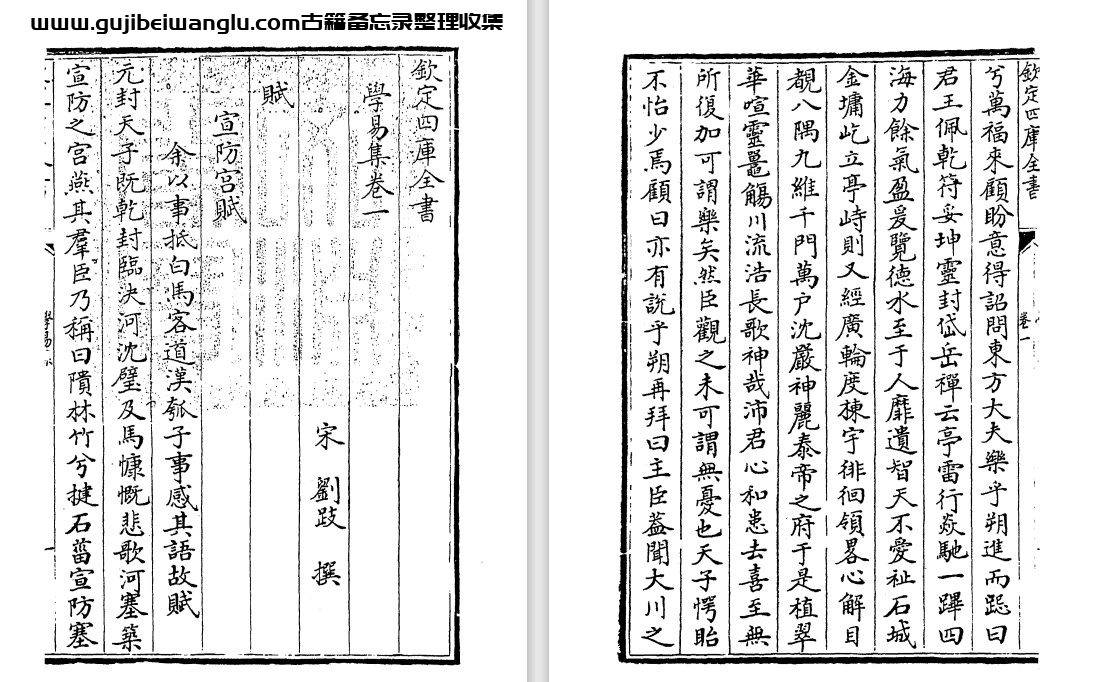 www.gujibeiwanglu.com古籍备忘录整理收集
欽定四庫全書
學易集卷一
宋 劉跂 撰
賦
宣防宮賦
余以事抵白馬客道漢瓠子事感其語故賦
元封天子既乾封臨決河沈璧及馬慷慨悲歌河塞築
宣防之宮燕其羣臣乃稱曰隤林竹兮揵石菑宣防塞
學易
一
欽定四庫全書
卷一
兮萬福來顧盼意得詔問東方大夫樂乎朔進而跽曰
君王佩乾符妥坤靈封岱岳禪云亭雷行焱馳一蹕四
海力餘氣盈爰覽德水至于人靡遺智天不愛祉石城
金墉屹立亭峙則又經廣輪度棟宇徘徊領畧心解目
覩八隅九維千門萬戶沈嚴神麗泰帝之府于是植翠
華喧靈鼉觴川流浩長歌神哉沛君心和恚去喜至無
所復加可謂樂矣然臣觀之未可謂無憂也天子愕眙
不怡少焉顧曰亦有說乎朔再拜曰主臣蓋聞大川之